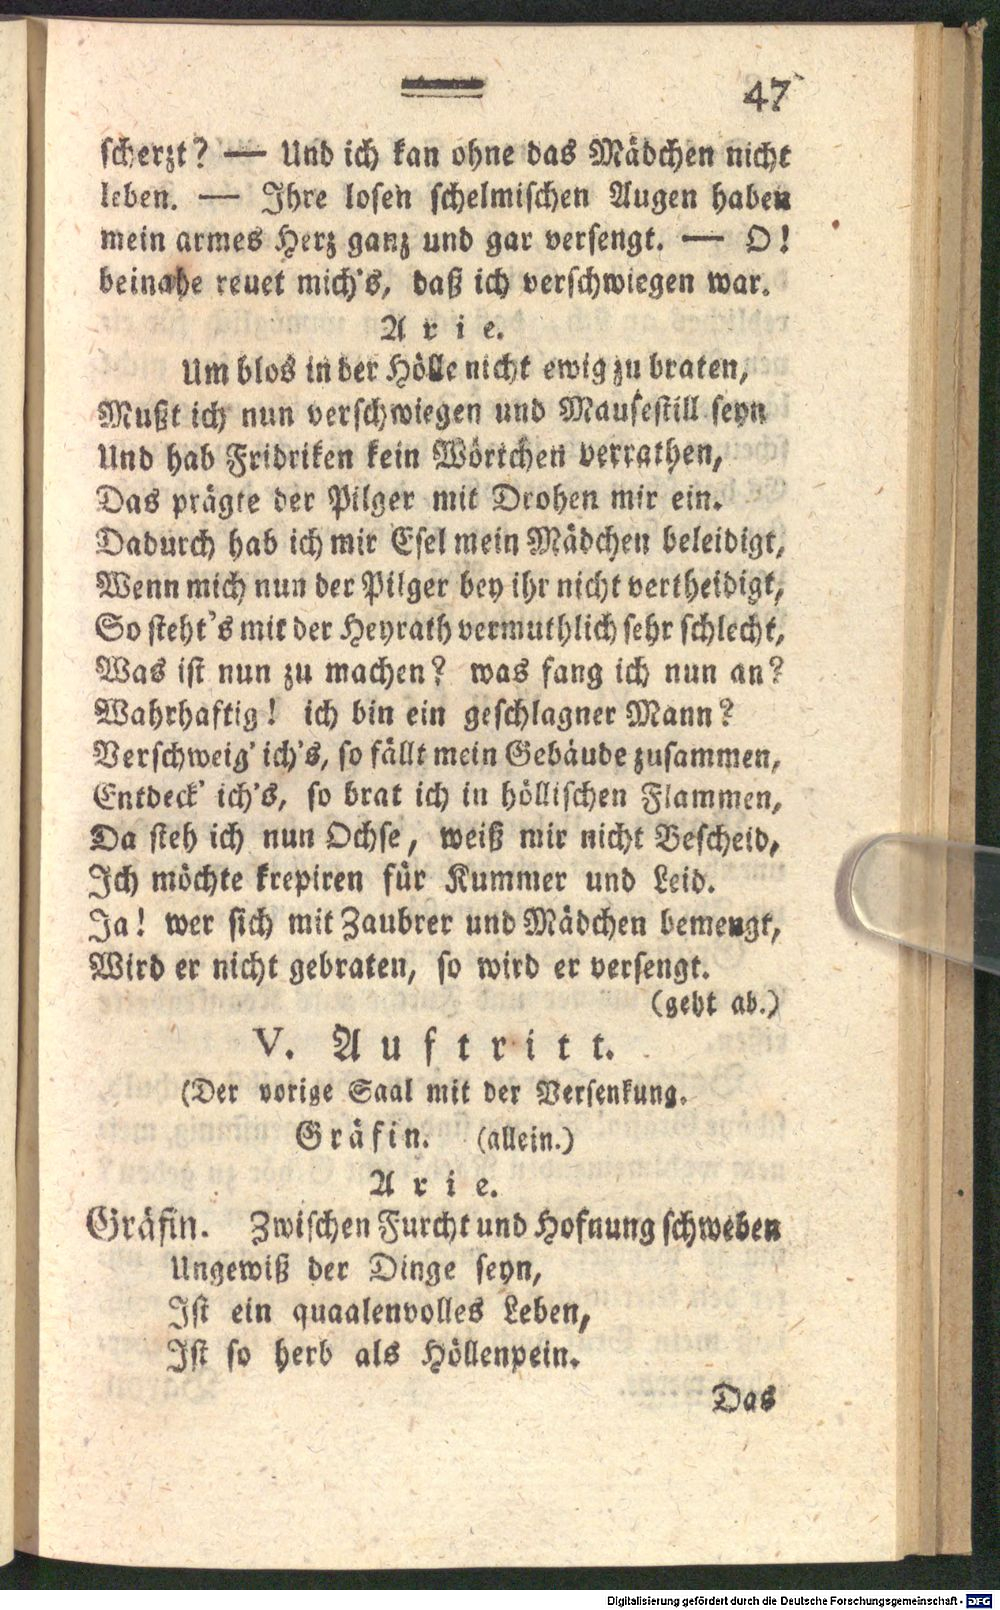 47
scherzt? — Und ich kan ohne das Mädchen nicht
leben. — Ihre losen schelmischen Augen haben
mein armes Herz ganz und gar versengt. — O!
beinahe reuet mich's, daß ich verschwiegen war.
Arie.
Um blos in der Hölle nicht ewig zu braten,
Mußt ich nun verschwiegen und Mausestill seyn
Und hab Fridriken kein Wörtchen verrathen,
Das prägte der Pilger mit Drohen mir ein.
Dadurch hab ich mir Esel mein Mädchen beleidigt,
Wenn mich nun der Pilger bey ihr nicht vertheidigt,
So steht's mit der Heyrath vermuthlich sehr schlecht,
Was ist nun zu machen? was fang ich nun an?
Wahrhaftig! ich bin ein geschlagner Mann?
Verschweig' ich's, so fällt mein Gebäude zusammen,
Entdeck' ich's, so brat ich in höllischen Flammen,
Da steh ich nun Ochse, weiß mir nicht Bescheid,
Ich möchte krepiren für Kummer und Leid.
Ja! wer sich mit Zaubrer und Mädchen bemengt,
Wird er nicht gebraten, so wird er versengt.
(geht ab.)
V. Auftritt.
(Der vorige Saal mit der Versenkung.
Gräfin. (allein.)
Arie.
Gräfin. Zwischen Furcht und Hofnung schweben
Ungewiß der Dinge seyn,
Ist ein quaalenvolles Leben,
Ist so herb als Höllenpein.
Das
Digitalisierung gefördert durch die Deutsche Forschungsgemeinschaft - DFG